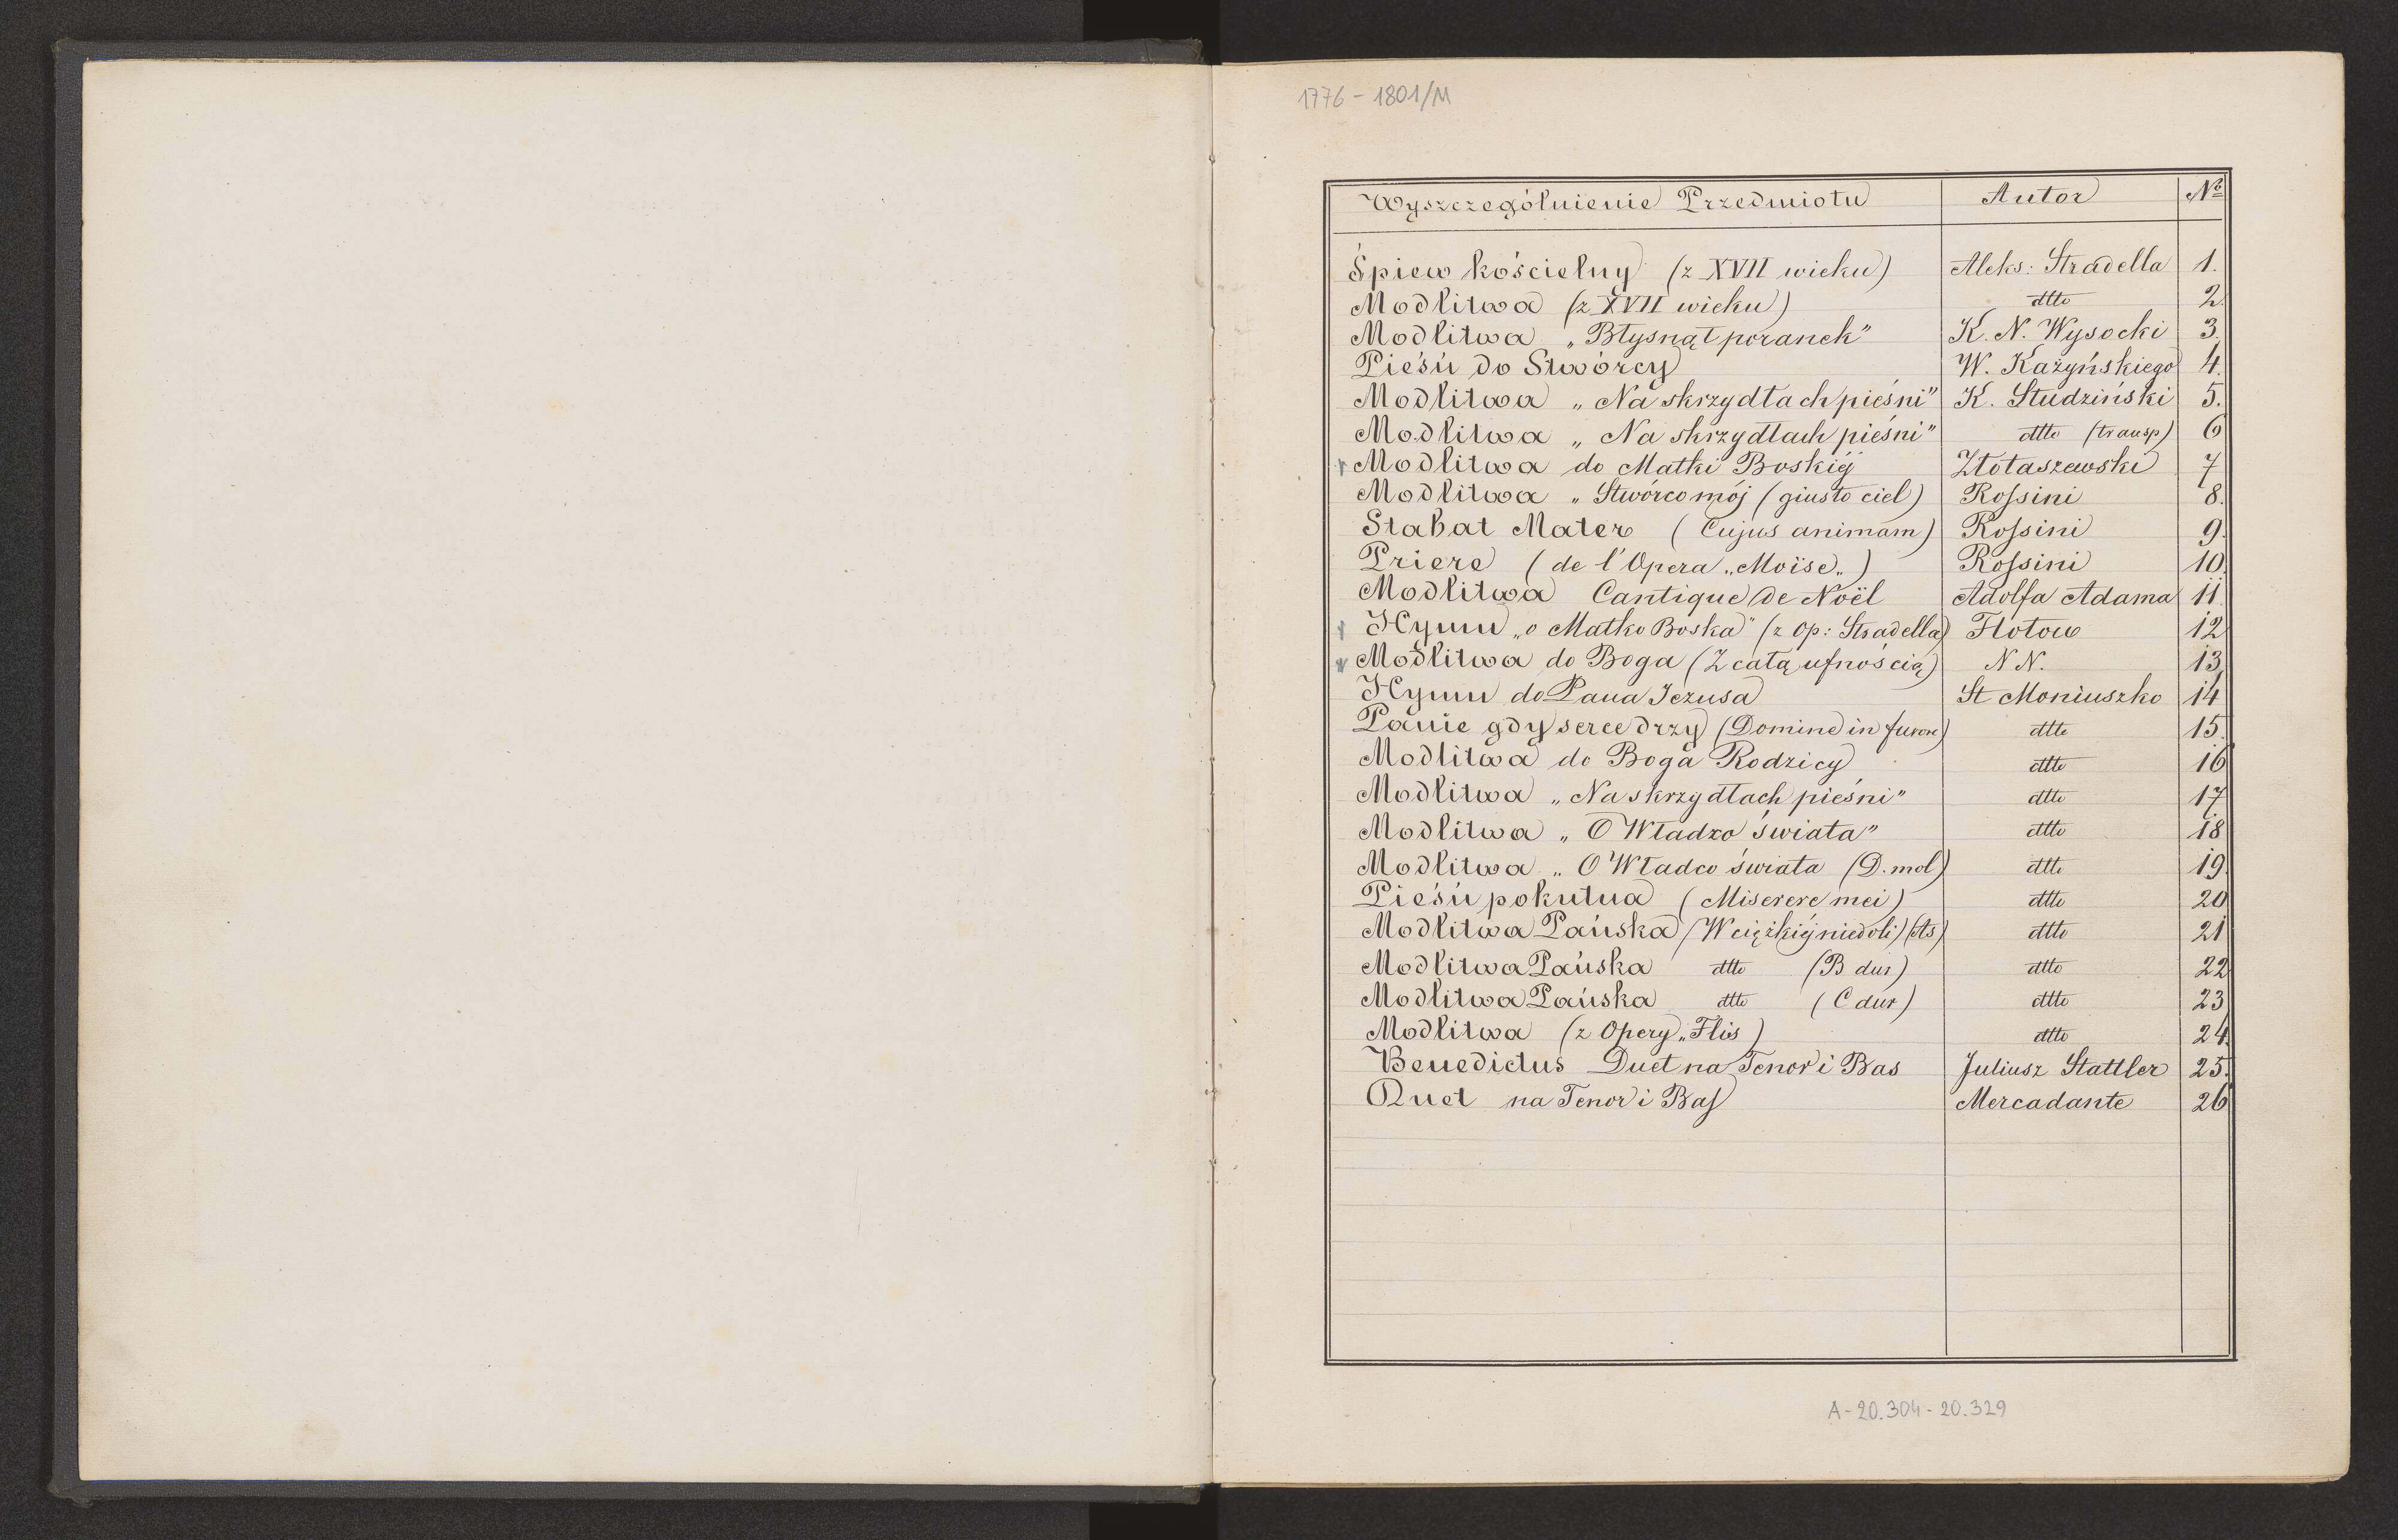 1776 - 1801/M
Wyszczególnienie Przedmiotu Autor No
Śpiew kościelny (z XVII wieku) Aleks: Stradella 1.
Modlitwa (z XVII wieku) dtto 2.
Modlitwa „Błysnął poranek" K. N. Wysocki 3.
Pieśń do Stwórcy W. Każyńskiego 4.
Modlitwa „Na skrzydłach pieśni" K. Studziński 5.
Modlitwa „Na skrzydłach pieśni" dtto (transp) 6
Modlitwa do Matki Boskiéj Złotaszewski 7
Modlitwa „Stwórco mój (giusto ciel) Rossini 8.
Stabat Mater (Cujus animam) Rossini 9.
Priere (de l'Opera „Moïse„) Rossini 10.
Modlitwa Cantique de Noël Adolfa Adama 11.
Hymn „o Matko Boska" (z op: Stradella) Flotow 12
Modlitwa do Boga (Z całą ufnością) N N. 13.
Hymn do Pana Jezusa St Moniuszko 14
Panie gdy serce drzy (Domine in furore) dtto 15.
Modlitwa do Boga Rodzicy dtto 16
Modlitwa „Na skrzydłach pieśni" dtto 17
Modlitwa „O Władzo świata" dtto 18
Modlitwa „O Władco świata (D. mol) dtto 19.
Pieśń pokutna (Miserere mei) dtto 20
Modlitwa Pańska (W ciężkiéj niedoli) (As) dtto 21
Modlitwa Pańska dtto (B dur) dtto 22
Modlitwa Pańska dtto (C dur) dtto 23
Modlitwa (z Opery „Flis) dtto 24.
Benedictus Duet na Tenor i Bas Juliusz Stattler 25.
Duet na Tenor i Bas Mercadante 26
A-20.304-20.329